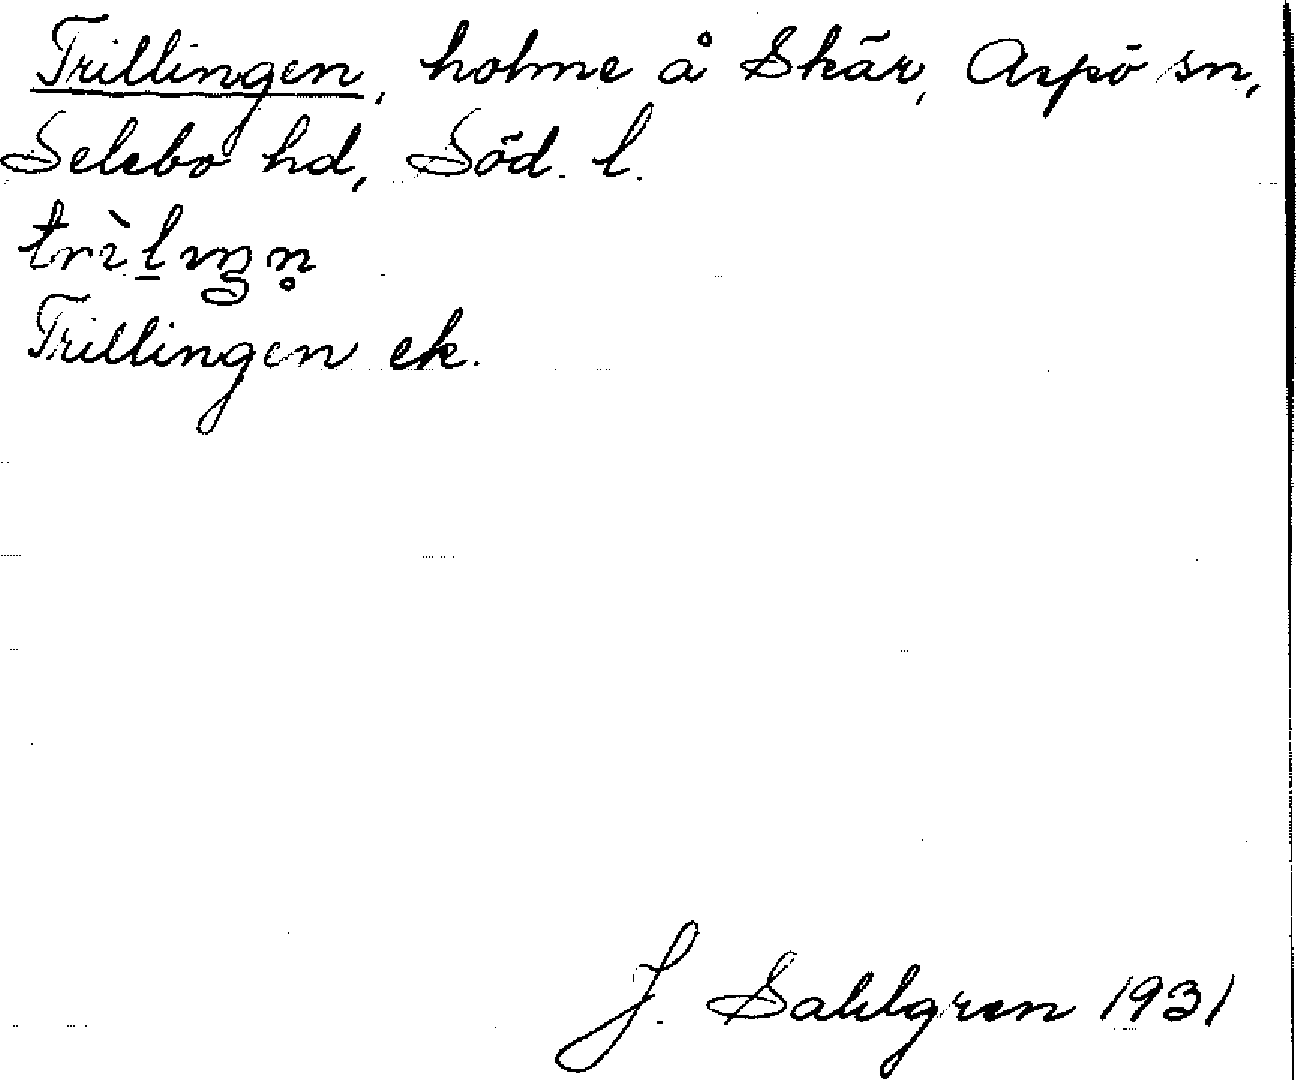 Trillingen, holme å Skär, Aspö sn,
Selebo hd, Söd. l.
trìlıŋn̥
Trillingen ek.
J. Sahlgren 1931